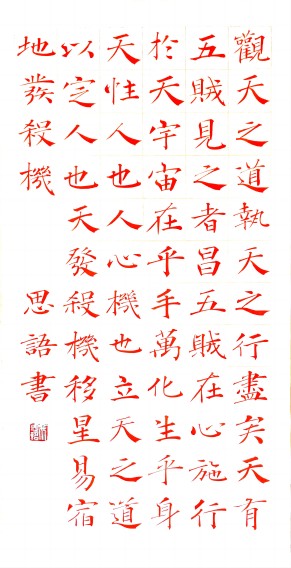 觀天之道執天之行盡矣天有
五賊見之者昌五賊在心施行
於天宇宙在乎手萬化生乎身
天性人也人心機也立天之道
以定人也天發殺機移星易宿
地發殺機
思語書